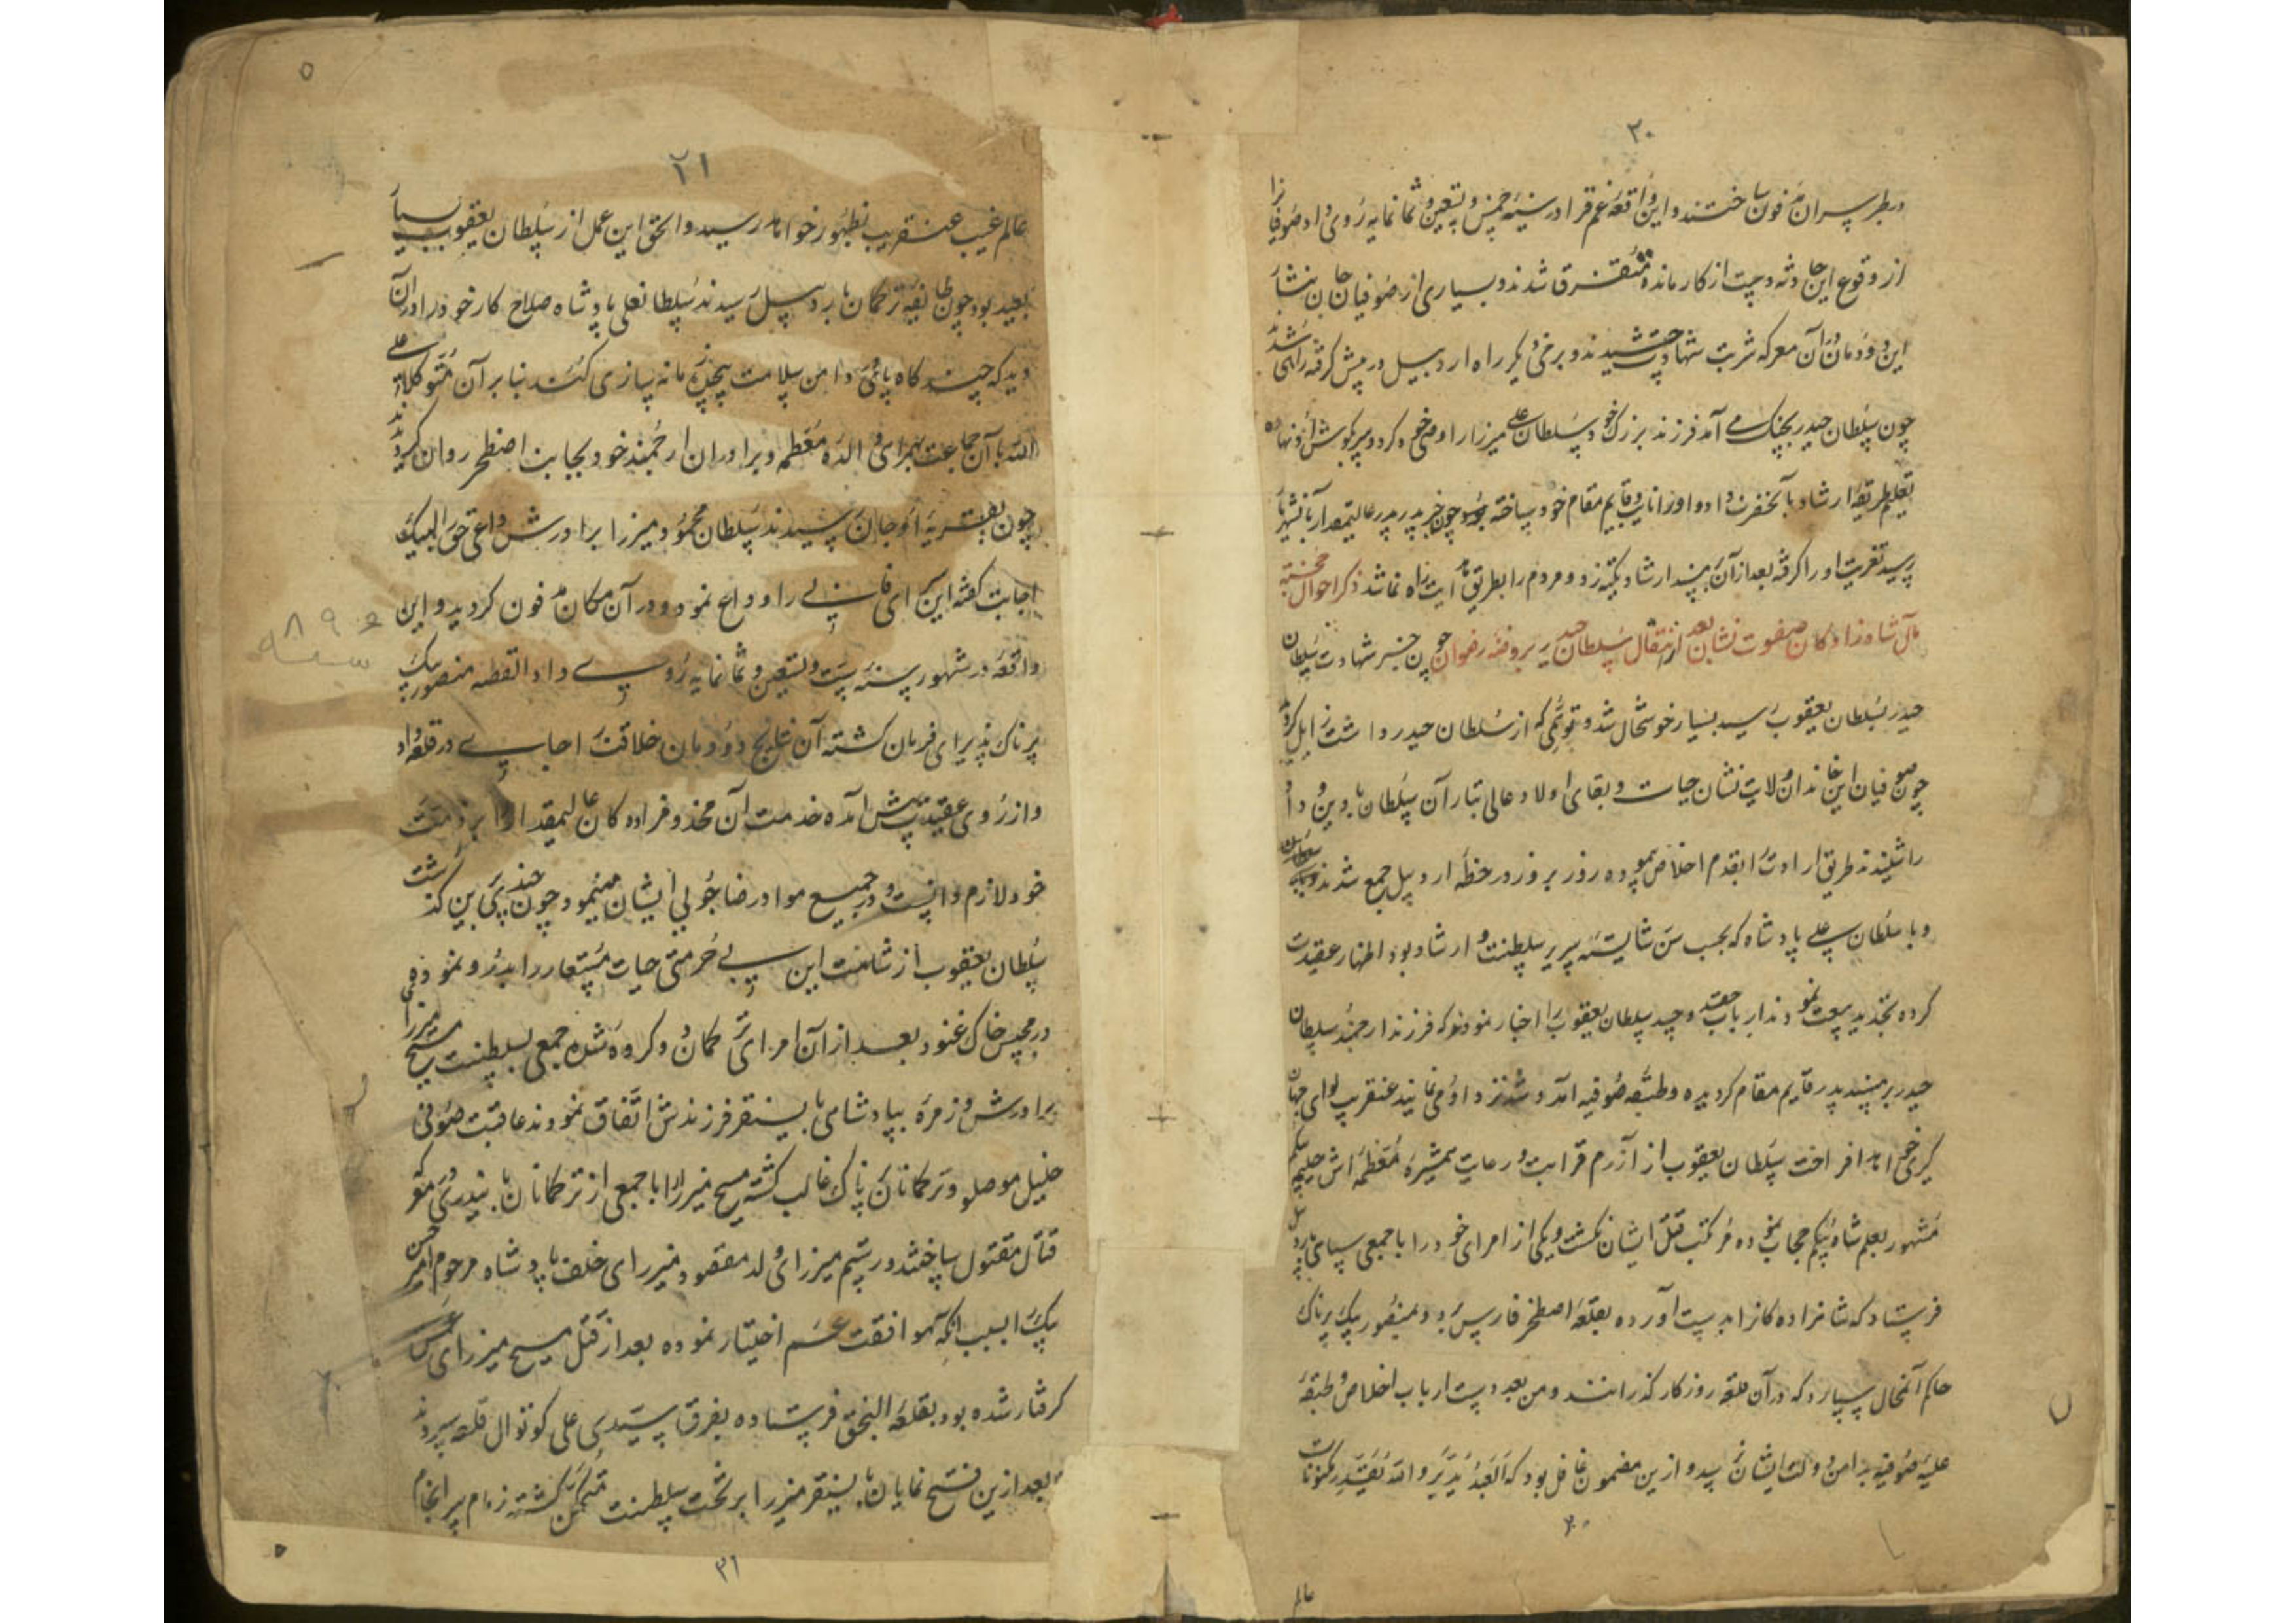 ۲۰
در طبرسران مدفون ساختند و این واقعه غم فزا در سنه خمس و تسعین و ثمانمایه روی داد صوفیانرا
از وقوع این حادثه دست از کار مانده متفرق شدند و بسیاری از صوفیان جان نثار
این دودمان در آن معرکه شربت شهادت چشیدند و برخی دیگر راه اردبیل در پیش گرفته راهی شدند
چون سلطان حیدر بجنک می آمد فرزند بزرک خود سلطان علی میرزا را وصی خود کرد و سر بکوش او نهاده
تعلیم طریقه ارشاد بآنحضرت داد و او را نایب و قایم مقام خود ساخته بود چون خبر پدر عالیمقدار بآنشهریار
رسید تعزیت او را گرفته بعد از آن بر مسند ارشاد تکیه زد و مردم را بطریق هدایت راه نما شد ذکر احوال خجسته
مآل شاهزادگان صفوت نشان بعد از انتقال سلطان حیدر بروضه رضوان چون خبر شهادت سلطان
حیدر بسلطان یعقوب رسید بسیار خوشحال شد و توهمی که از سلطان حیدر داشت زایل گردید
چون صوفیان این خاندان ولایت نشان حیات و بقای اولاد عالی تبار آن سلطان با دین و داد
را شنیدند طریق ارادت را بقدم اخلاص پیموده روز بروز در خطه اردبیل جمع شدند
و با سلطان علی پادشاه که بحسب سن شایسته سریر سلطنت و ارشاد بود اظهار عقیدت
کرده تجدید بیعت نمودند ارباب حقد و حسد سلطان یعقوب را اخبار نمودند که فرزند ارجمند سلطان
حیدر بر مسند پدر قایم مقام گردیده و طبقه صوفیه آمد و شد نزد او می نمایند عنقریب لوای جهان
گیری خواهد افراخت سلطان یعقوب از آزرم قرابت و رعایت همشیره معظمه اش حلیمه بیکم
مشهور بعلمشاه بیکم حجاب نموده مرتکب قتل ایشان نکشت و یکی از امرای خود را با جمعی سپاهی باردبیل
فرستاد که شاهزاده کانرا بدست آورده بقلعه اصطخر فارس برد و بمنصور بیک پرناک
حاکم آنمحال سپارد که در آن قلعه روزکار گذرانند و من بعد دست ارباب اخلاص و طبقه
علیه صوفیه بدامن دولت ایشان نرسد و ازین مضمون غافل بود که العبد یدبر و الله یقدر مکنونات
۲۰
عالم
۲۱
عالم غیب عنقریب بظهور خواهد رسید و الحق این عمل از سلطان یعقوب بسیار
بعید بود چون طایفه ترکمان باردبیل رسیدند سلطانعلی پادشاه صلاح کار خود را در آن
دید که چند کاه پای در دامن سلامت پیچیده زمانه سازی کنند بنا بر آن متوکلا علی
الله با آن جماعت بهمراهی والده معظمه و برادران ارجمند خود بجانب اصطخر روان گردیدند
چون بقریه اوجان رسیدند سلطان محمود میرزا برادرش داعی حق را لبیک
اجابت گفته این سرای فانی را وداع نمود و در آن مکان مدفون گردید و این
سنه ۸۹۶
واقعه در شهور سنه ست و تسعین و ثمانمایه روی داد القصه منصور بیک
پرناک پذیرای فرمان کشته آن نتایج دودمان خلافت را جای در قلعه داد
و از روی عقیدت پیش آمده خدمت آن مخدوم زاده کان عالیمقدار را بر ذمت
خود لازم دانست و در جمیع مواد رضا جویی ایشان مینمود و چون چندی برین گذشت
سلطان یعقوب از شامت این بی حرمتی حیات مستعار را بدرود نموده
در محبس خاک غنود بعد از آن امرای ترکمان دو گروه شده جمعی بسلطنت مسیح میرزا
برادرش و زمره بپادشاهی بایسنقر فرزندش اتفاق نمودند عاقبت صوفی
خلیل موصلو و ترکمانان پرناک غالب کشته مسیح میرزا را با جمعی از ترکمانان باینذری در معرکه
قتال مقتول ساختند و رستم میرزای ولد مقصود میرزای خلف پادشاه مرحوم امیر حسن
بیک را بسبب آنکه موافقت عم اختیار نموده بعد از قتل مسیح میرزای عمش
گرفتار شده بود بقلعه النجق فرستاده بقرقا سیدی علی کوتوال قلعه سپردند
و بعد ازین فتح نمایان بایسنقر میرزا بر تخت سلطنت متمکن کشته زمام سرانجام
۲۱